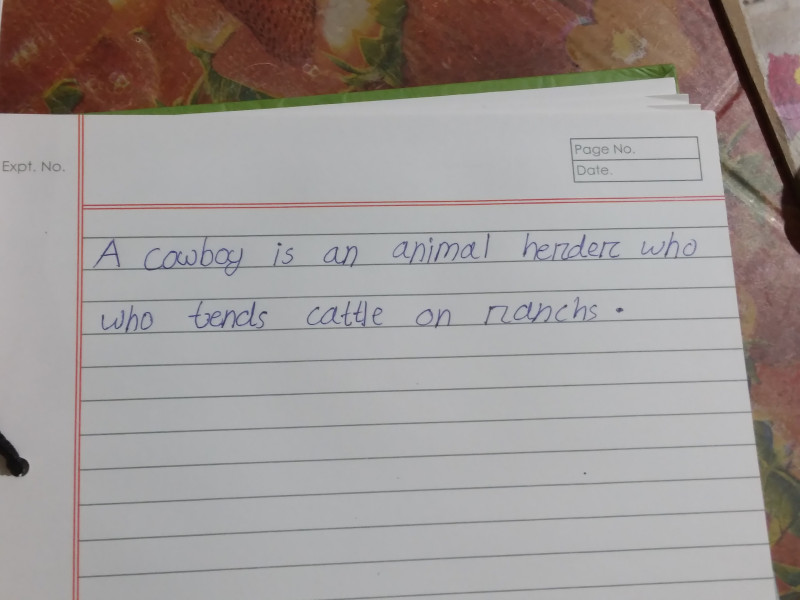 Expt. No.
Page No.
Date.
A cowboy is an animal herder who
who tends cattle on ranchs.